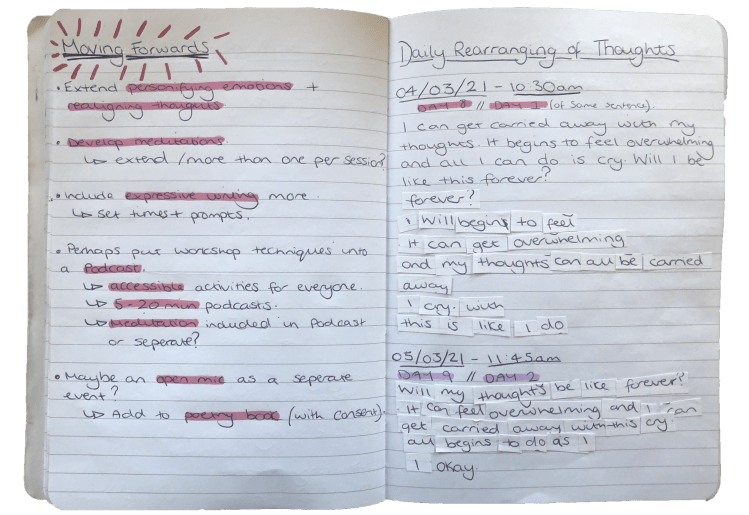 Moving Forwards
• Extend personifying emotions +
realigning thoughts
• Develop meditations.
↳ extend / more than one per session?
• Include expressive writing more.
↳ set times + prompts.
• Perhaps put workshop techniques into
a Podcast.
↳ accessible activities for everyone.
↳ 5-20 min podcasts.
↳ Meditation included in Podcast
or seperate?
• Maybe an open mic as a seperate
event?
↳ Add to poetry book (with consent).
Daily Rearranging of Thoughts
04/03/21 - 10:30am
DAY 8 // DAY 1 (of same sentence).
I can get carried away with my
thoughts. It begins to feel overwhelming
and all I can do is cry. Will I be
like this forever?
forever?
I Will begin to feel
It can get overwhelming
and my thoughts can all be carried
away
I cry. with
this is like I do
05/03/21 - 11:45am
DAY 9 // DAY 2
Will my thoughts be like forever?
It can feel overwhelming and I can
get carried away with this cry.
all begins to do as I
I okay.